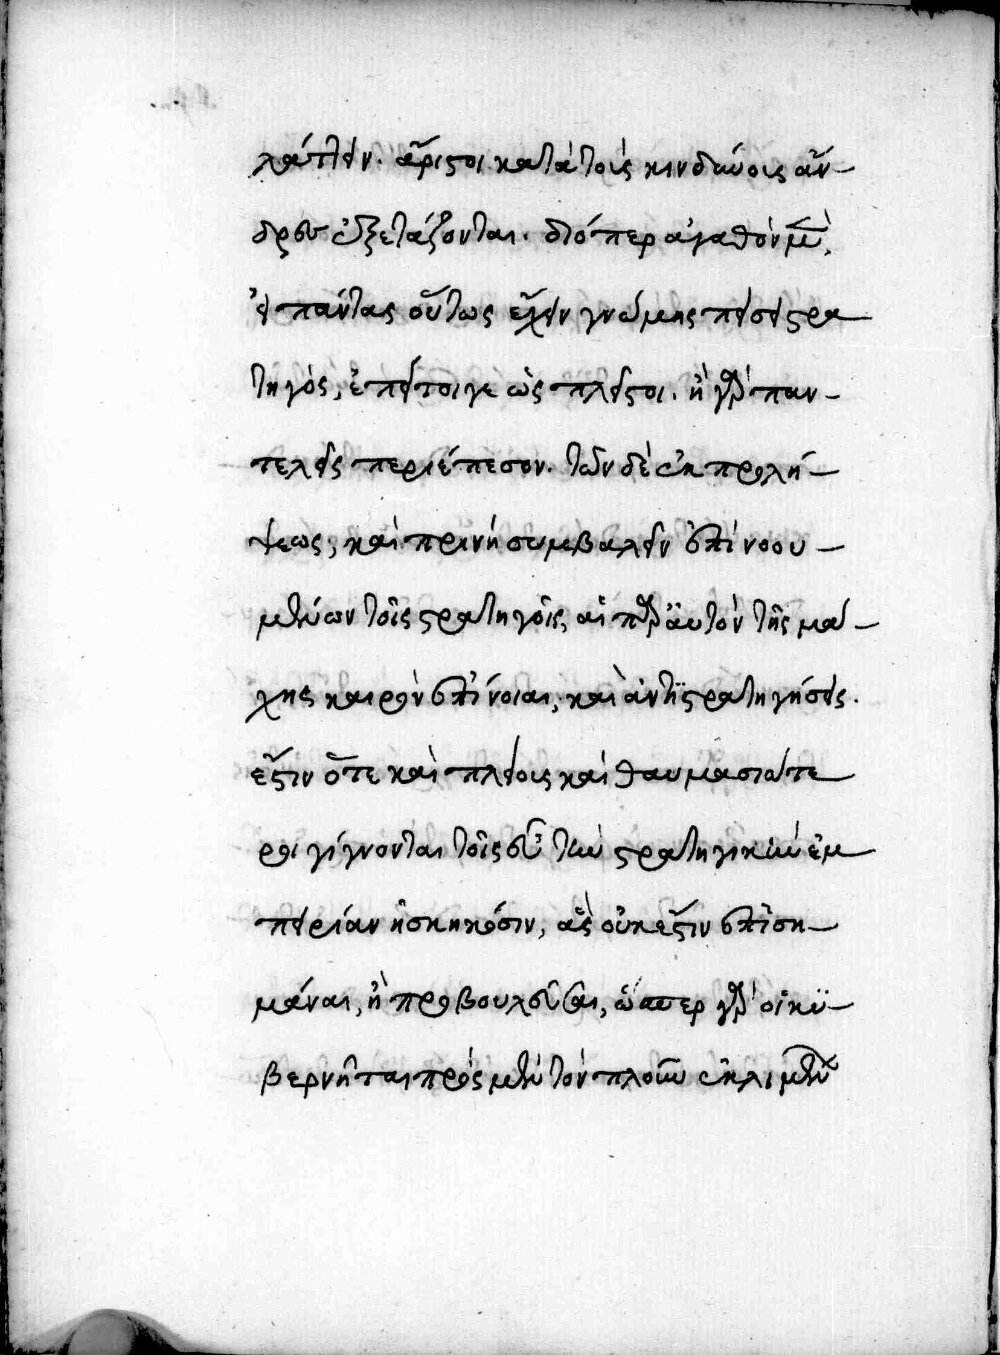 λάττειν. ἄριστοι κατὰ τοὺς κινδύνους ἄν-
δρες ἐξετάζονται. διόπερ ἀγαθὸν μὲν,
εἰ πάντας οὕτως ἔχειν γνώμης πείσει στρα
τηγὸς, εἰ πείτοιγε ὡς πλεῖστοι. ἢ γὰρ παν-
τελεῖς περιέπεσον. τῶν δὲ ἐκ προλή-
ψεως, καὶ πρινὴ συμβαλεῖν ἐπινοου-
μένων τοῖς στρατηγοῖς, αἱ παρ' αὐτὸν τῆς μά-
χης καιρὸν ἐπίνοιαι, καὶ ἀντιστρατηγήσεις.
ἔστιν ὅτε καὶ πλείους καὶ θαυμασιώτε
ροι γίγνονται τοῖς τὴν στρατηγικὴν ἐμ
πειρίαν ἠσκηκόσιν, ἃς οὐκ ἔστιν ἐπιση-
μάναι, ἢ προβουλεῦσαι, ὥσπερ γὰρ οἱ κυ-
βερνῆται πρὸς μὲν τὸν πλοῦν ἐκ λιμένων